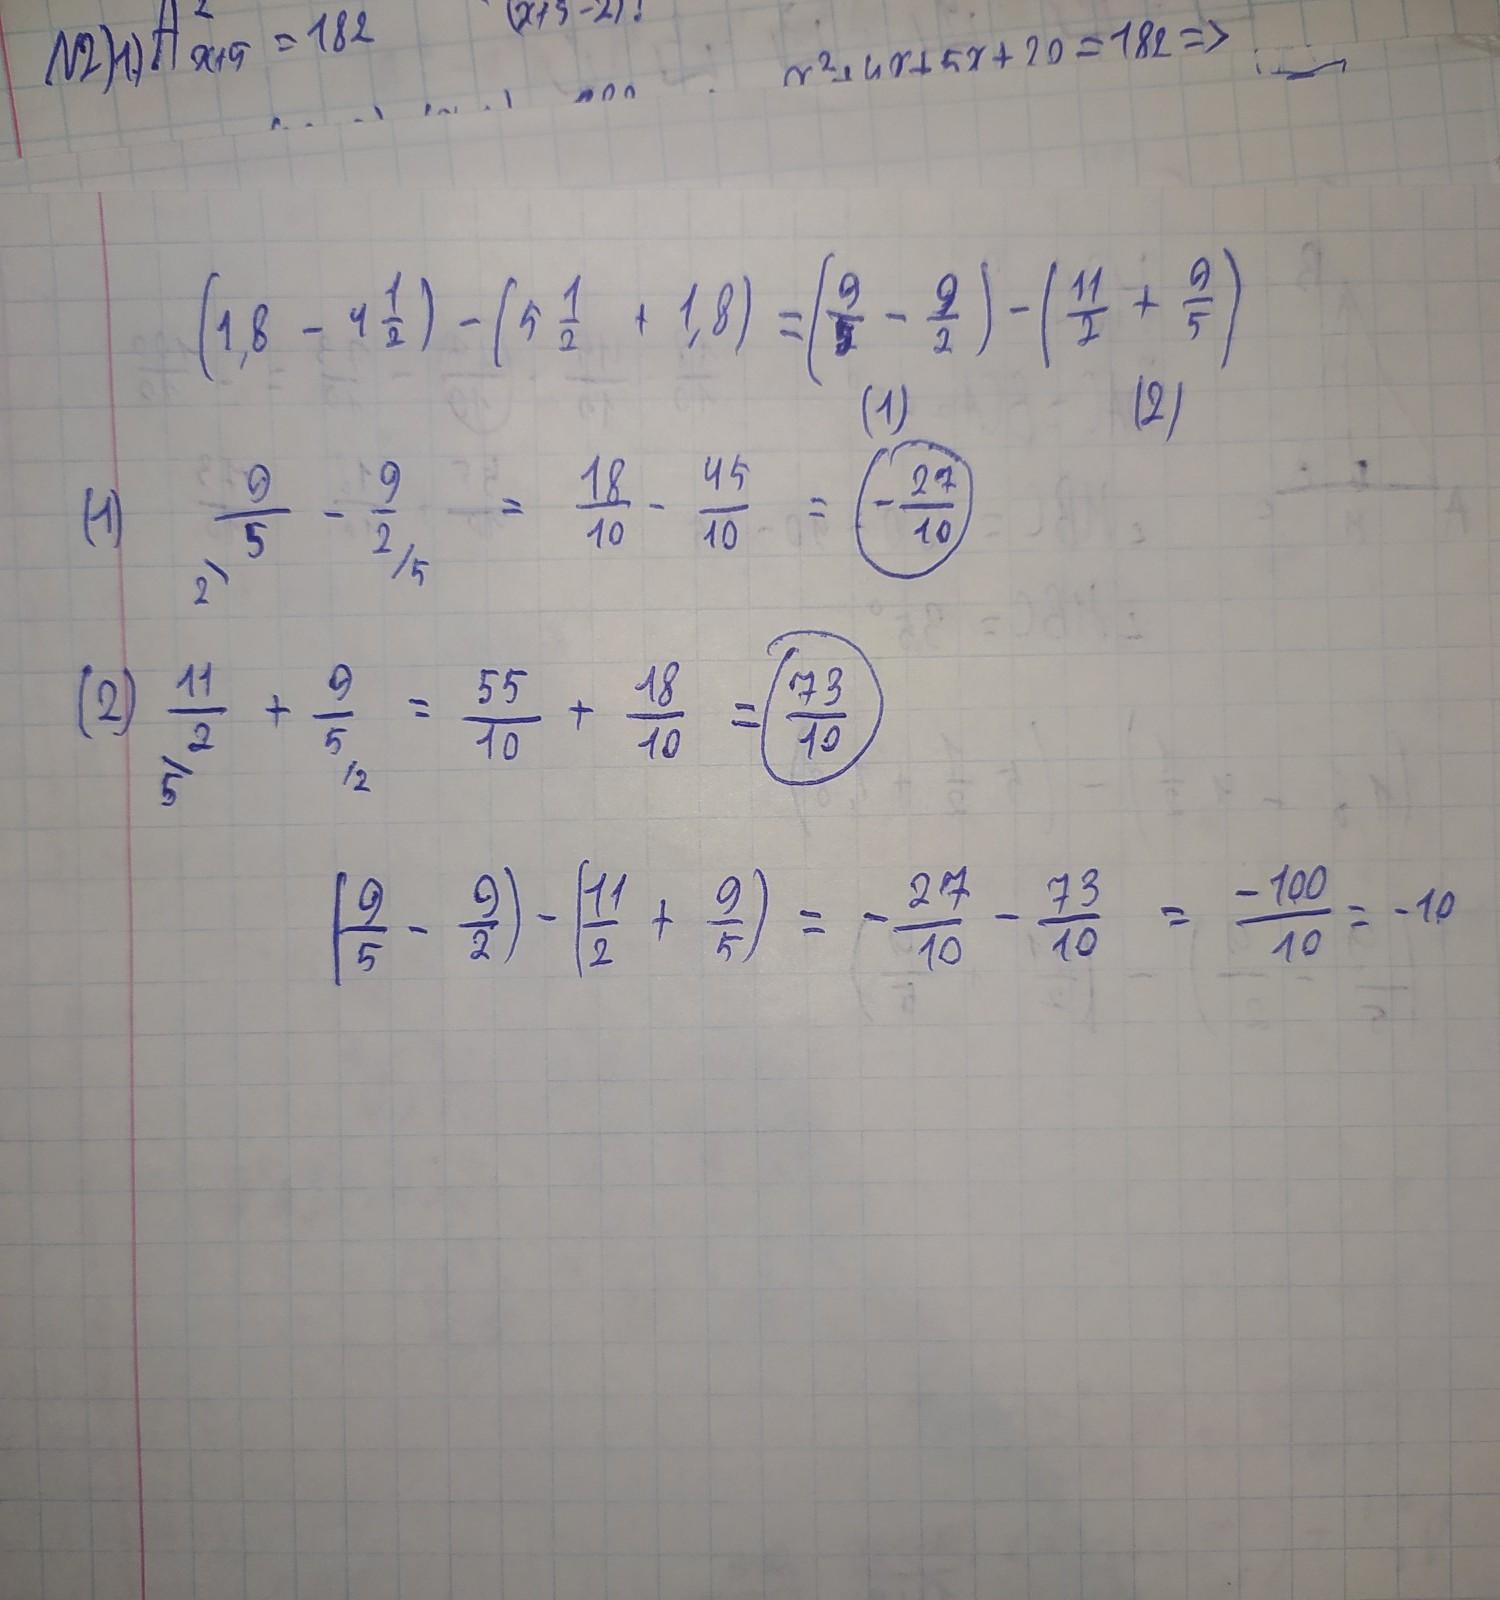 N2) 1) A²ₓ₊₅ = 182
(x+5-2)!
x²+4x+5x+20=182=>
(1,8 - 4 1/2) - (5 1/2 + 1,8) = (9/5 - 9/2) - (11/2 + 9/5)
(1) (2)
(1) 9/5 - 9/2 = 18/10 - 45/10 = -27/10
2) /5
(2) 11/2 + 9/5 = 55/10 + 18/10 = 73/10
5/ /2
(9/5 - 9/2) - (11/2 + 9/5) = -27/10 - 73/10 = -100/10 = -10